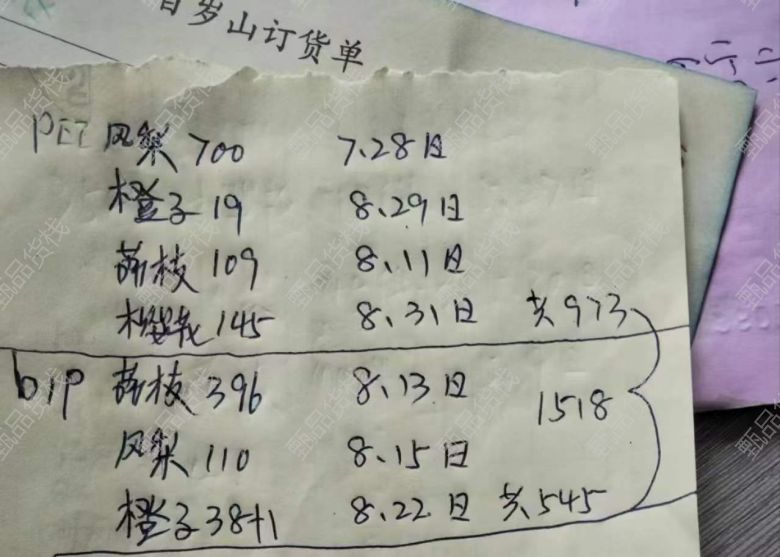 百岁山订货单
PET 凤梨 700 7.28日
橙子 19 8.29日
荔枝 109 8.11日
145 8.31日 共973
bip 荔枝 396 8.13日
1518
凤梨 110 8.15日
橙子 38+1 8.22日 共545
甄品货栈